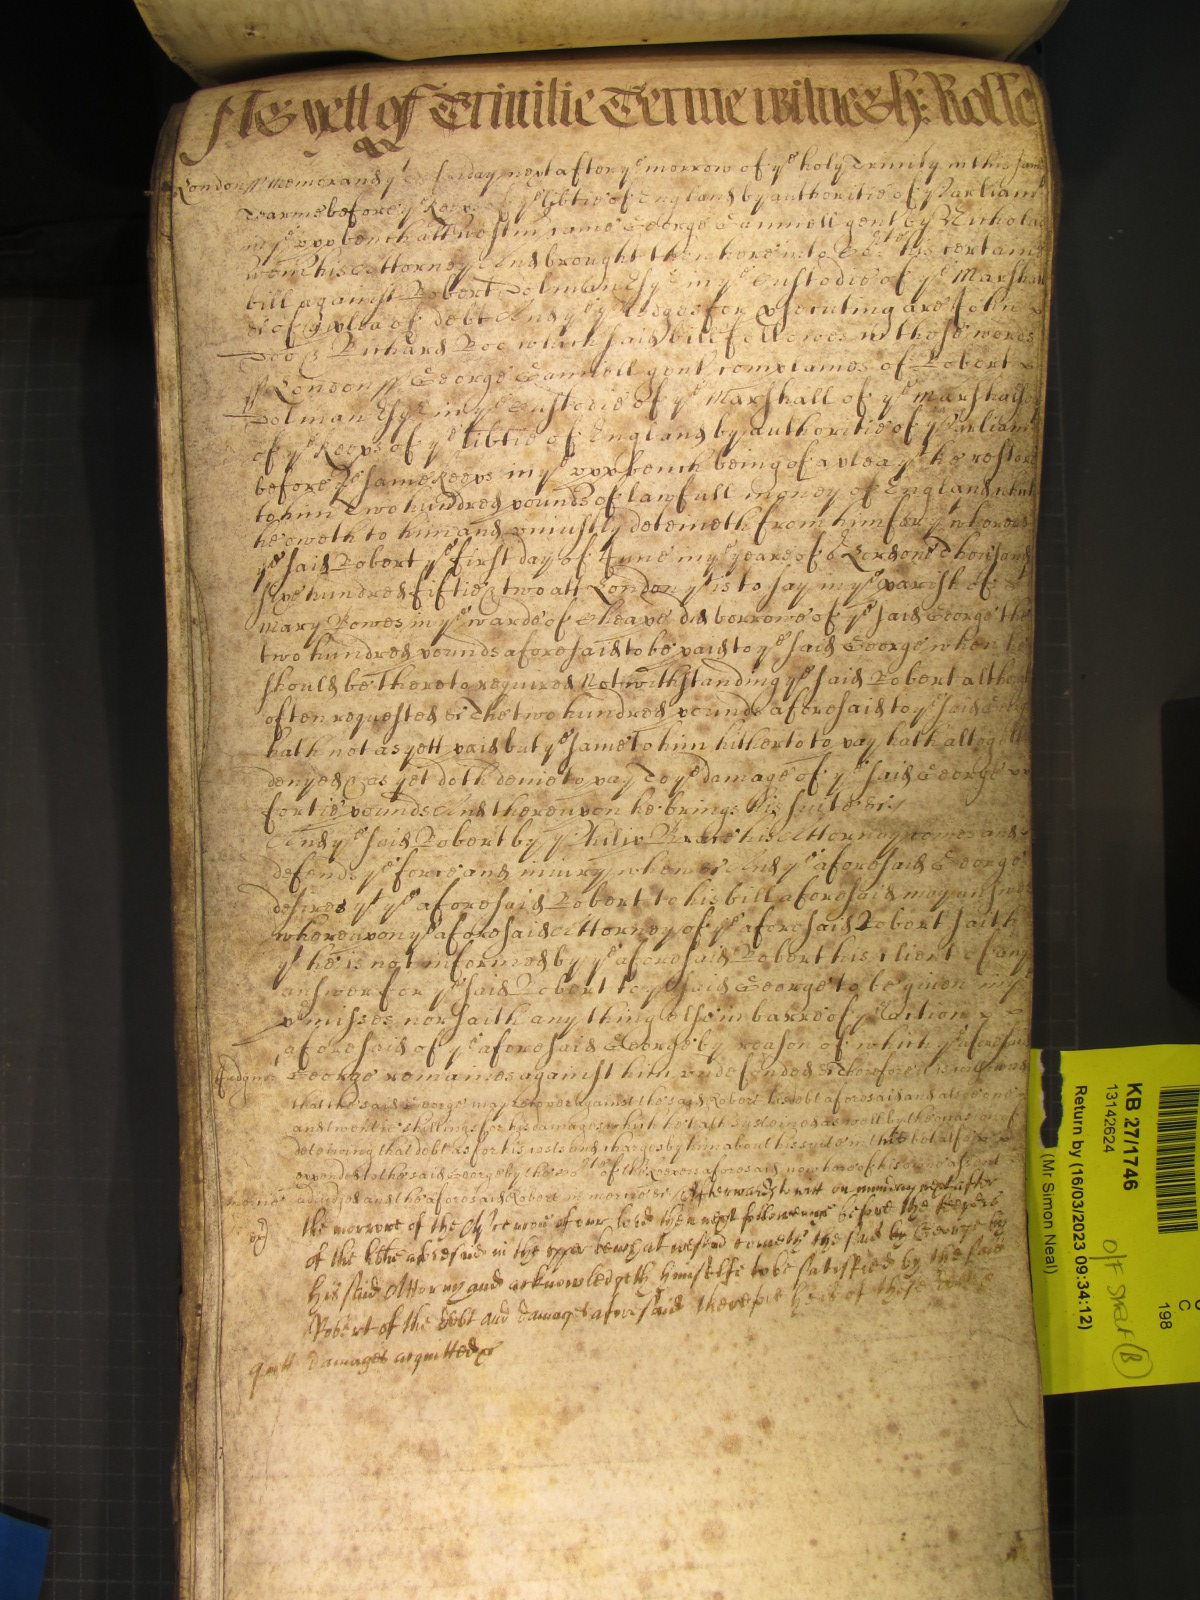 As yett of Trinitie Terme witnes H: Rolle
London ss Memorand yt on friday next after ye morrow of ye holy Trinity in this same
Tearme before ye Keeps of ye libtie of England by authoritie of ye Parliamt
in ye upp bench att Westm came George Gannell gent by Nicholas
his Attorney And brought then here into his certaine
bill against Robert Dolman Esqr in ye Custodie of ye Marshall
&c of a plea of debt And yr are pledges for psecuting are John
Doo & Richard Roo which said bill followes in these words
ss London ss George Gannell gent complaines of Robert
Dolman Esqr in ye Custodie of ye Marshall of ye Marshalsey
of ye Keeps of ye libtie of England by authoritie of ye Parliamt
before ye same Keeps in ye upp bench being of a plea yt he restore
to him Two hundred pounds of lawfull money of England which
he oweth to him and uniustly deteineth from him for yt whereas
ye said Robert ye first day of June in ye yeare of or Lord one thousand
six hundred fiftie & two att London yt is to say in ye parish of St
Mary Bowes in ye warde of Cheape did borrowe of ye said George the
two hundred pounds aforesaid to be paid to ye said George when he
should be thereto required Notwithstanding ye said Robert although
often requested &c the two hundred pounds aforesaid to ye said George
hath not as yett paid but ye same to him hitherto to pay hath altogeth
denyed & as yet doth denie to pay To ye damage of ye said George
fortie pounds And thereupon he brings his suite &c
And ye said Robert by Philip his Attorney comes and
defends ye force and iniury when &c And ye aforesaid George
desires yt ye aforesaid Robert to his bill aforesaid may answer
whereupon ye aforesaid Attorney of ye aforesaid Robert saith
yt he is not informed by ye aforesaid Robert his client of any
answer for ye said Robert to ye said George to be given in ye
pmisses nor saith any thing else in barre of ye action
aforesaid of ye aforesaid George by reason of which ye aforesaid
Judgmt George remaines against him undefended &c Therefore it is considered
that the said George may recover against the said Robert his debt aforesaid and alsoe one
and twentie shillings for his damages which he hath susteined as well by the occasion of
deteining that debt as for his costs and charges by him about his suite in this behalfe
expended to the said George by the cort of the Keepers aforesaid now here of his owne assent
adiudged and the aforesaid Robert in mercie &c Afterwards to witt on munday next after
the morrow of the of our lord then next followeinge before the keepers
of the libtie aforesaid in the upper bench at westm cometh the said George by
his said Attorny and acknowledgeth himselfe to be satisfied by the said
Robert of the debt and damages aforesaid therefore hee of those
quitt damages acquitted &c
KB 27/1746
13142624
Return by (16/03/2023 09:34:12)
(Mr Simon Neal)
C
198
O/F Shelf (B)